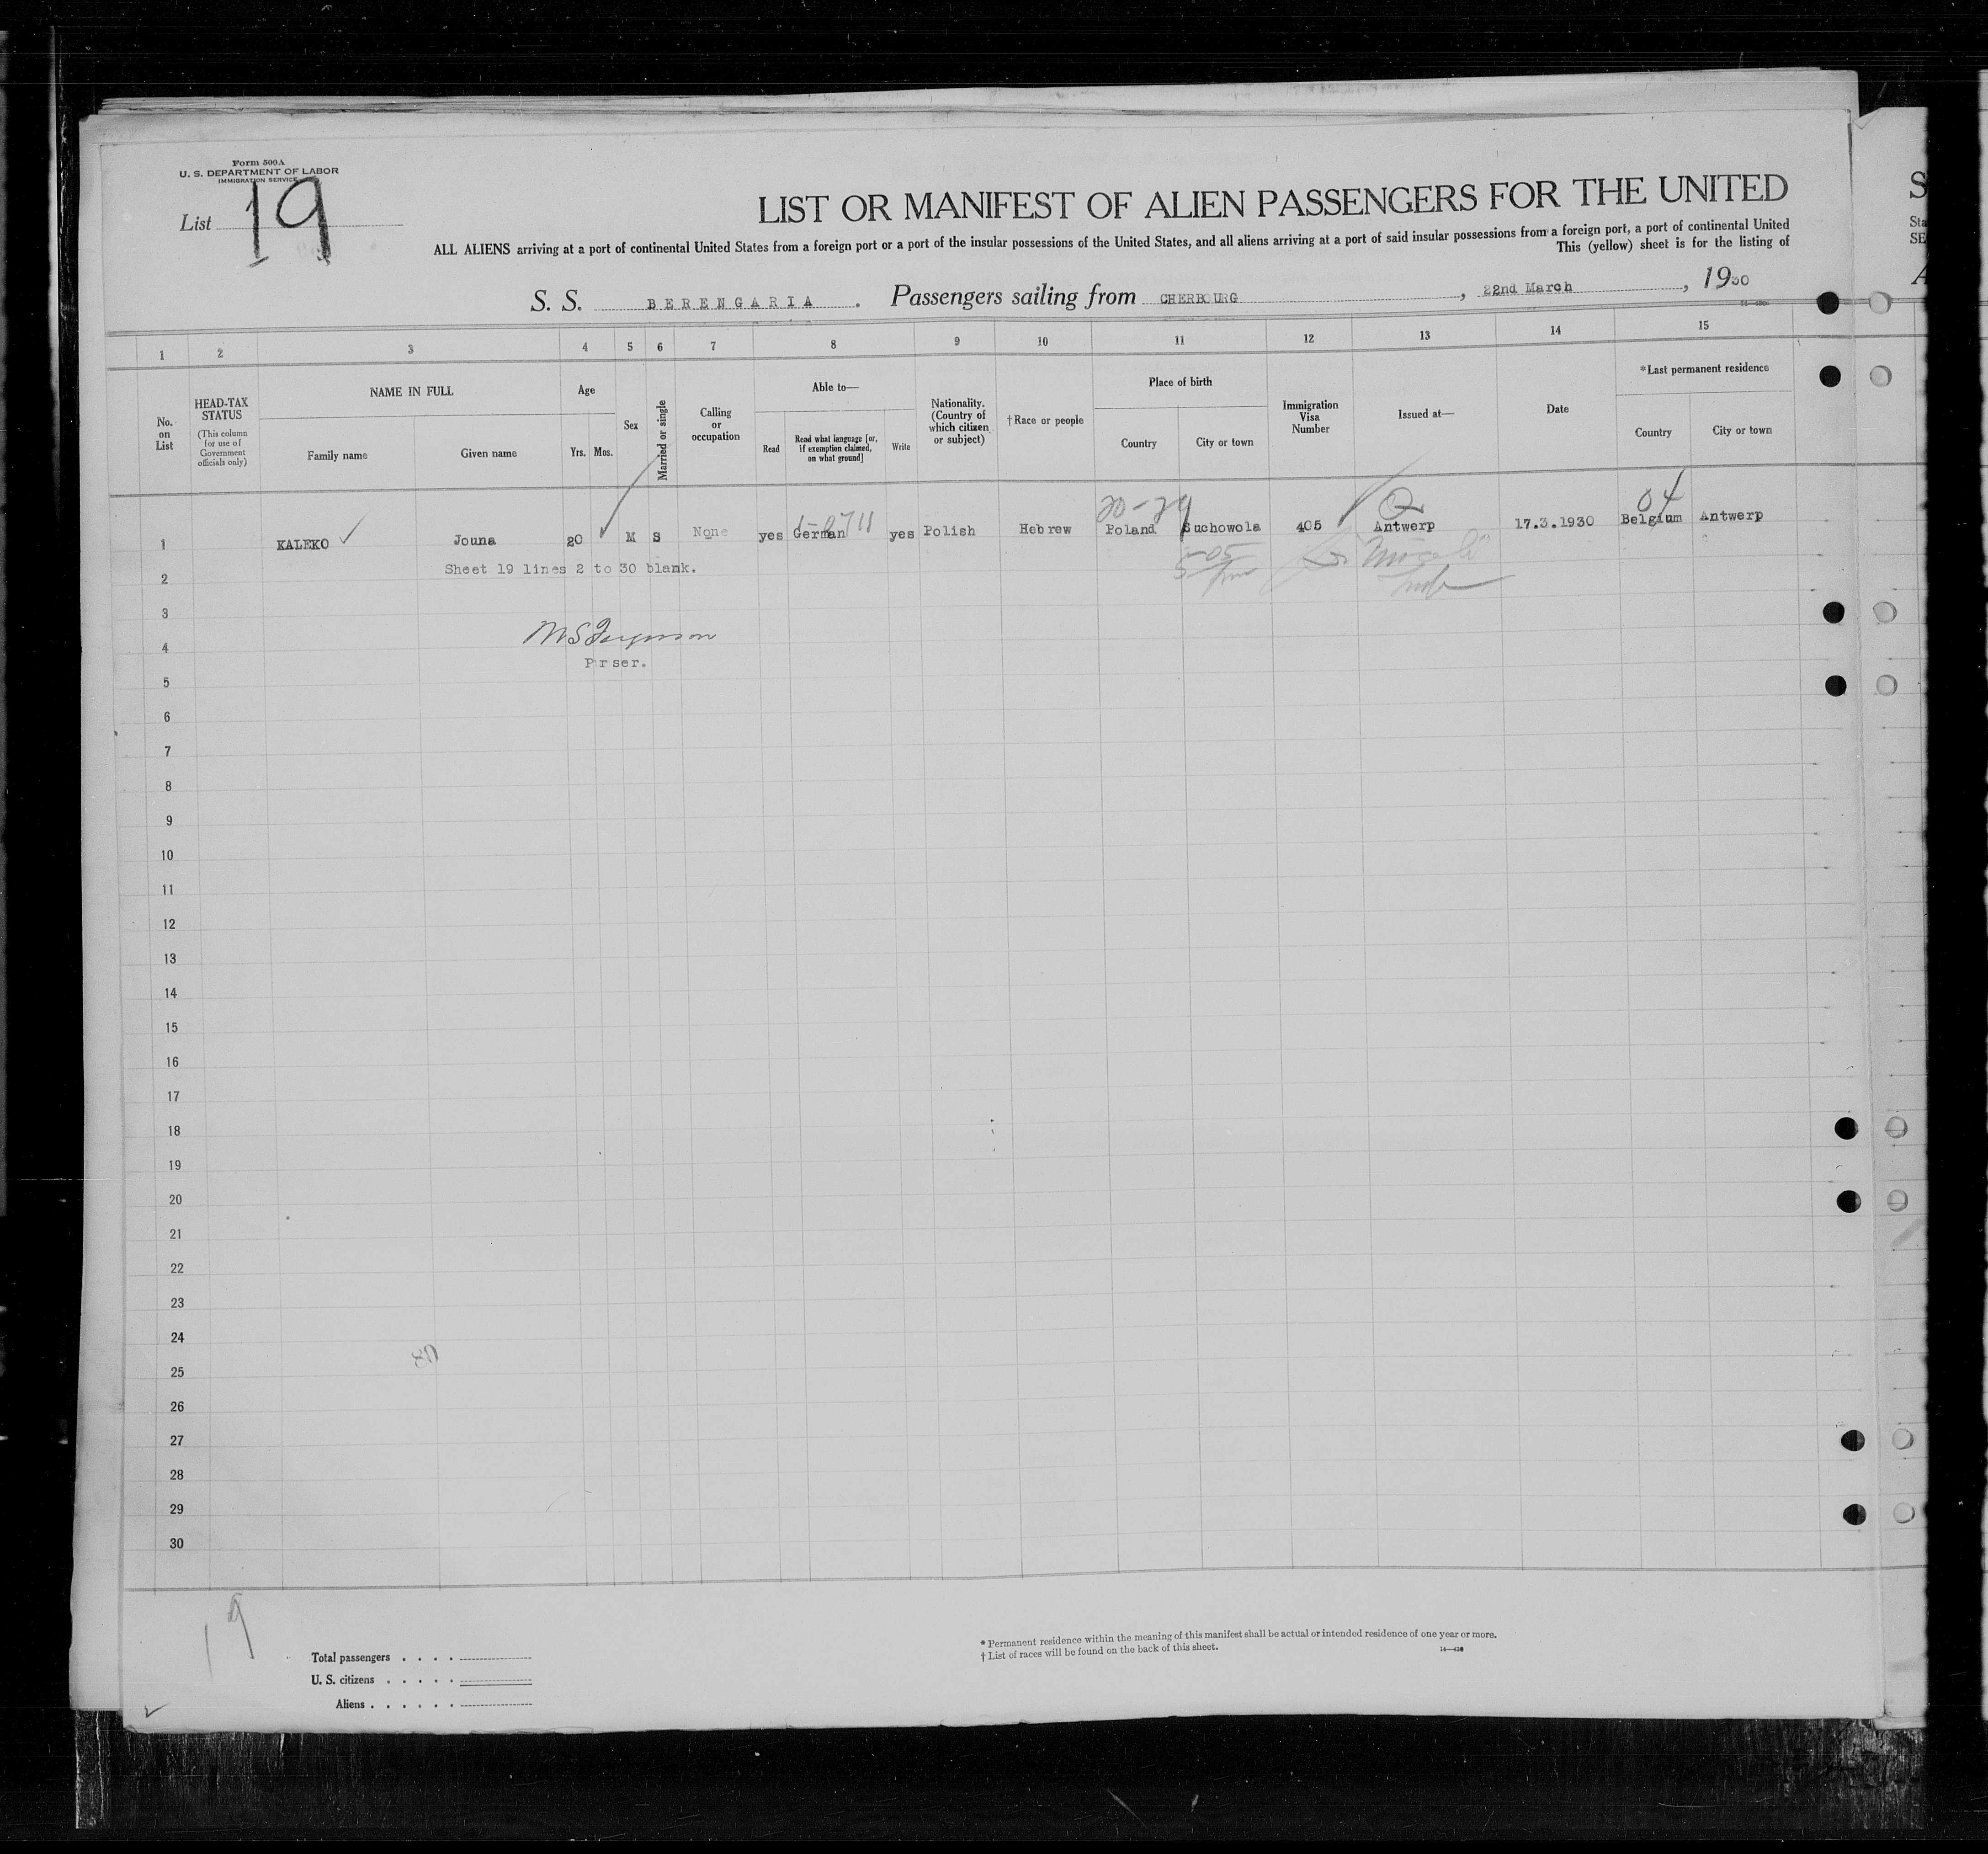 Form 500A
U. S. DEPARTMENT OF LABOR
IMMIGRATION SERVICE
List 19
LIST OR MANIFEST OF ALIEN PASSENGERS FOR THE UNITED
ALL ALIENS arriving at a port of continental United States from a foreign port or a port of the insular possessions of the United States, and all aliens arriving at a port of said insular possessions from a foreign port, a port of continental United
This (yellow) sheet is for the listing of
S. S. BERENGARIA. Passengers sailing from CHERBOURG, 22nd March, 1930
1 2 3 4 5 6 7 8 9 10 11 12 13 14 15
No. on List
HEAD-TAX STATUS
(This column for use of Government officials only)
NAME IN FULL
Family name Given name
Age
Yrs. Mos.
Sex
Married or single
Calling or occupation
Able to—
Read
Read what language [or, if exemption claimed, on what ground]
Write
Nationality. (Country of which citizen or subject)
† Race or people
Place of birth
Country City or town
Immigration Visa Number
Issued at—
Date
*Last permanent residence
Country City or town
20-29 04
1 KALEKO Jouna 20 M S None yes German yes Polish Hebrew Poland Suchowola 405 Antwerp 17.3.1930 Belgium Antwerp
Sheet 19 lines 2 to 30 blank.
2
3
4
M S Ferguson
P rser.
5
6
7
8
9
10
11
12
13
14
15
16
17
18
19
20
21
22
23
24
25
26
27
28
29
30
19
Total passengers . . . .
U. S. citizens . . . . .
Aliens . . . . . .
* Permanent residence within the meaning of this manifest shall be actual or intended residence of one year or more.
† List of races will be found on the back of this sheet.